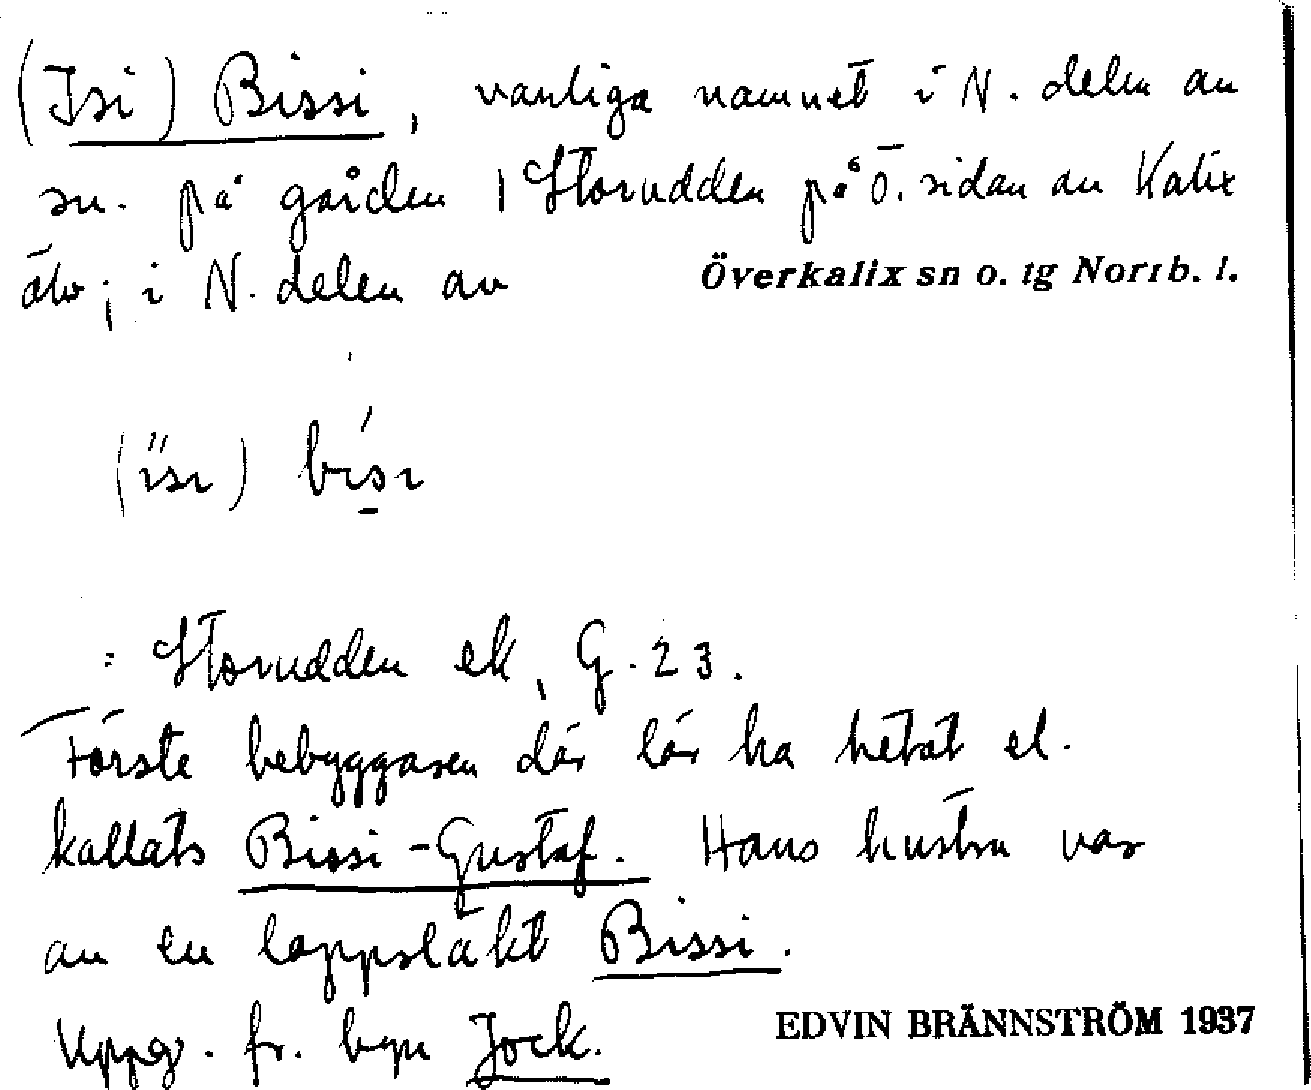 (Isi) Bissi, vanliga namnet i N. delen av
sn. på gården 1 Storudden på ö. sidan av Kalix
älv; i N. delen av Överkalix sn o. tg Norrb. l.
(ìsı) bísı
= Storudden ek, G. 23.
Förste bebyggaren där lär ha hetat el.
kallats Bissi-Gustaf. Hans hustru var
av en lappsläkt Bissi.
Uppg. fr. byn Jock.
EDVIN BRÄNNSTRÖM 1937